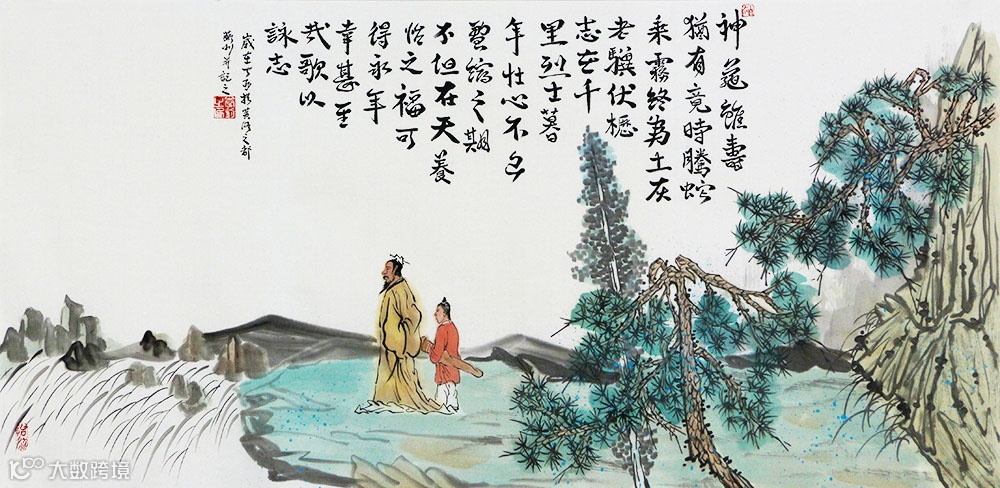 神龜雖壽
猶有竟時騰蛇
乘霧終為土灰
老驥伏櫪
志在千
里烈士暮
年壮心不已
盈缩之期
不但在天養
怡之福可
得永年
幸甚至
哉歌以
詠志
歲在丁
并記之
大数跨境